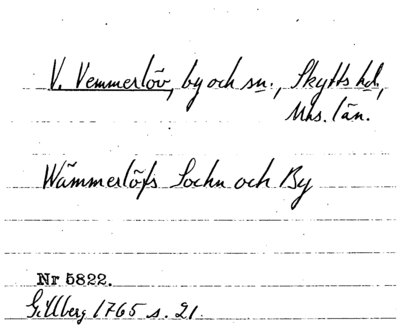 V. Vemmerlöv, by och sn., Skytts hd.,
Mhs. län.
Wämmerlöfs Sochn och By
Nr 5822.
Gillberg 1765 s. 21.